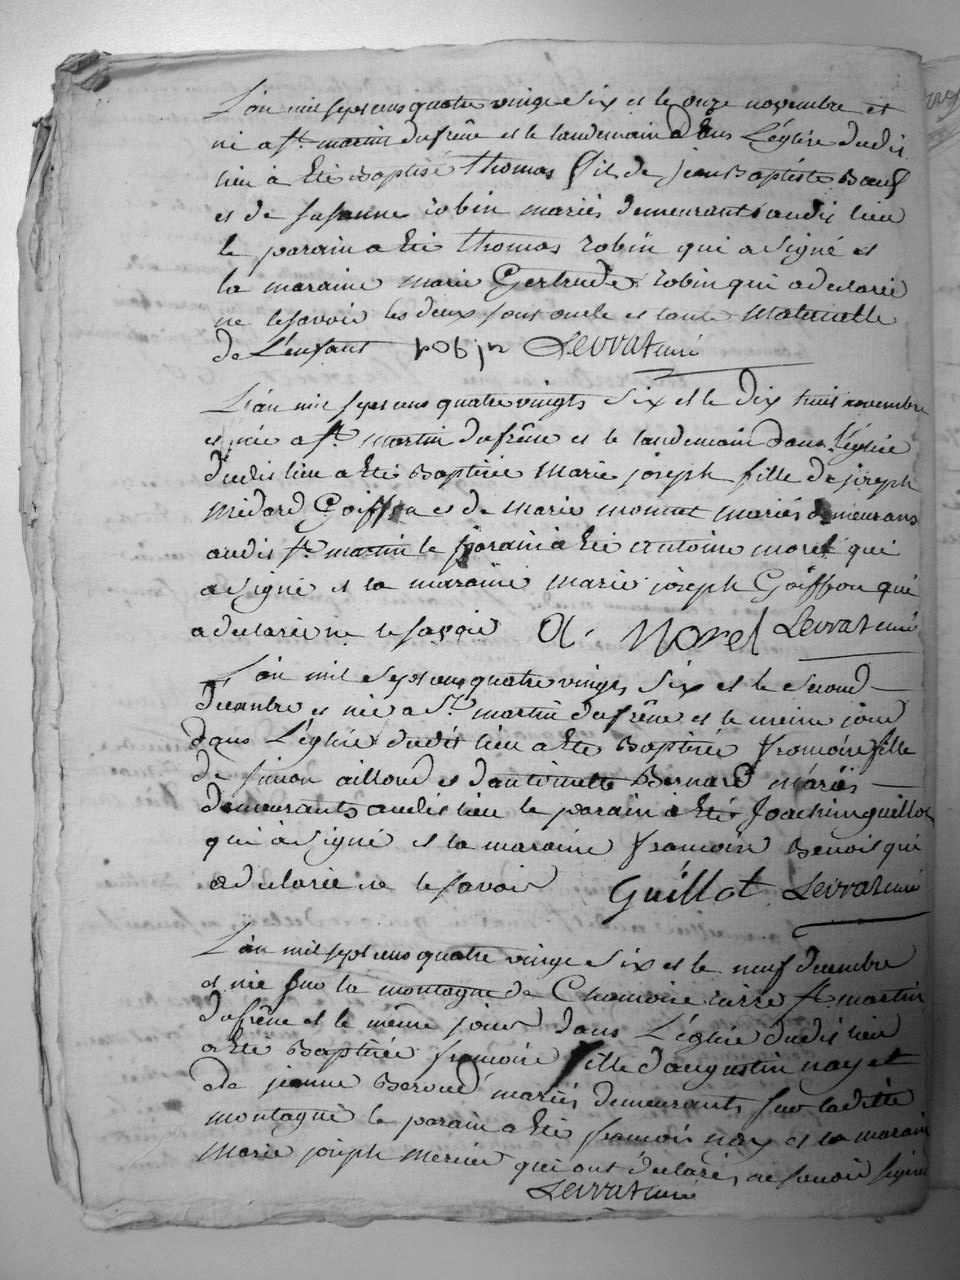 L'an mil sept cens quatre vingt six et le onze novembre est
né a st martin dufrêne et le landemain dans L'église dudit
lieu a Eté Baptisé thomas fils de jean Baptiste
et de susanne robin mariés demeurants audit lieu
le parain a Eté thomas robin qui a signé et
la maraine marie Gertrude robin qui a declarée
ne le savoir les deux sont oncle et tante Maternelle
de L'enfant robin Levrat curé
L'an mil sept cens quatre vingts six et le dix huit novembre
est née a st martin dufrêne et le landemain dans L'église
dudit lieu a Eté Baptisée Marie joseph fille de joseph
Médard Goiffon et de marie monnet mariés demeurans
audit st martin le parain a Eté antoine morel qui
a signé et la maraine marie joseph Goiffon qui
a declarée ne le savoir A. Morel Levrat curé
L'an mil sept cens quatre vingts six et le second
decembre est née a st martin dufrêne et le meme jour
dans L'église dudit lieu a Eté Baptisée francoise fille
de simon ailloud et d'antoinette Bernard mariés
demeurants audit lieu le parain a Eté Joachim guillot
qui a signé et la maraine francoise Benoit qui
a declarée ne le savoir Guillot Levrat curé
L'an mil sept cens quatre vingt six et le neuf decembre
est née sur la montagne de Chamoise st martin
dufrêne et le même jour dans L'église dudit lieu
a Eté Baptisée francoise fille d'augustin nay et
de jeanne mariés demeurants sur la ditte
montagne le parain a Eté francois nay et la maraine
Marie joseph mercier qui ont déclarés ne savoir signer
Levrat curé